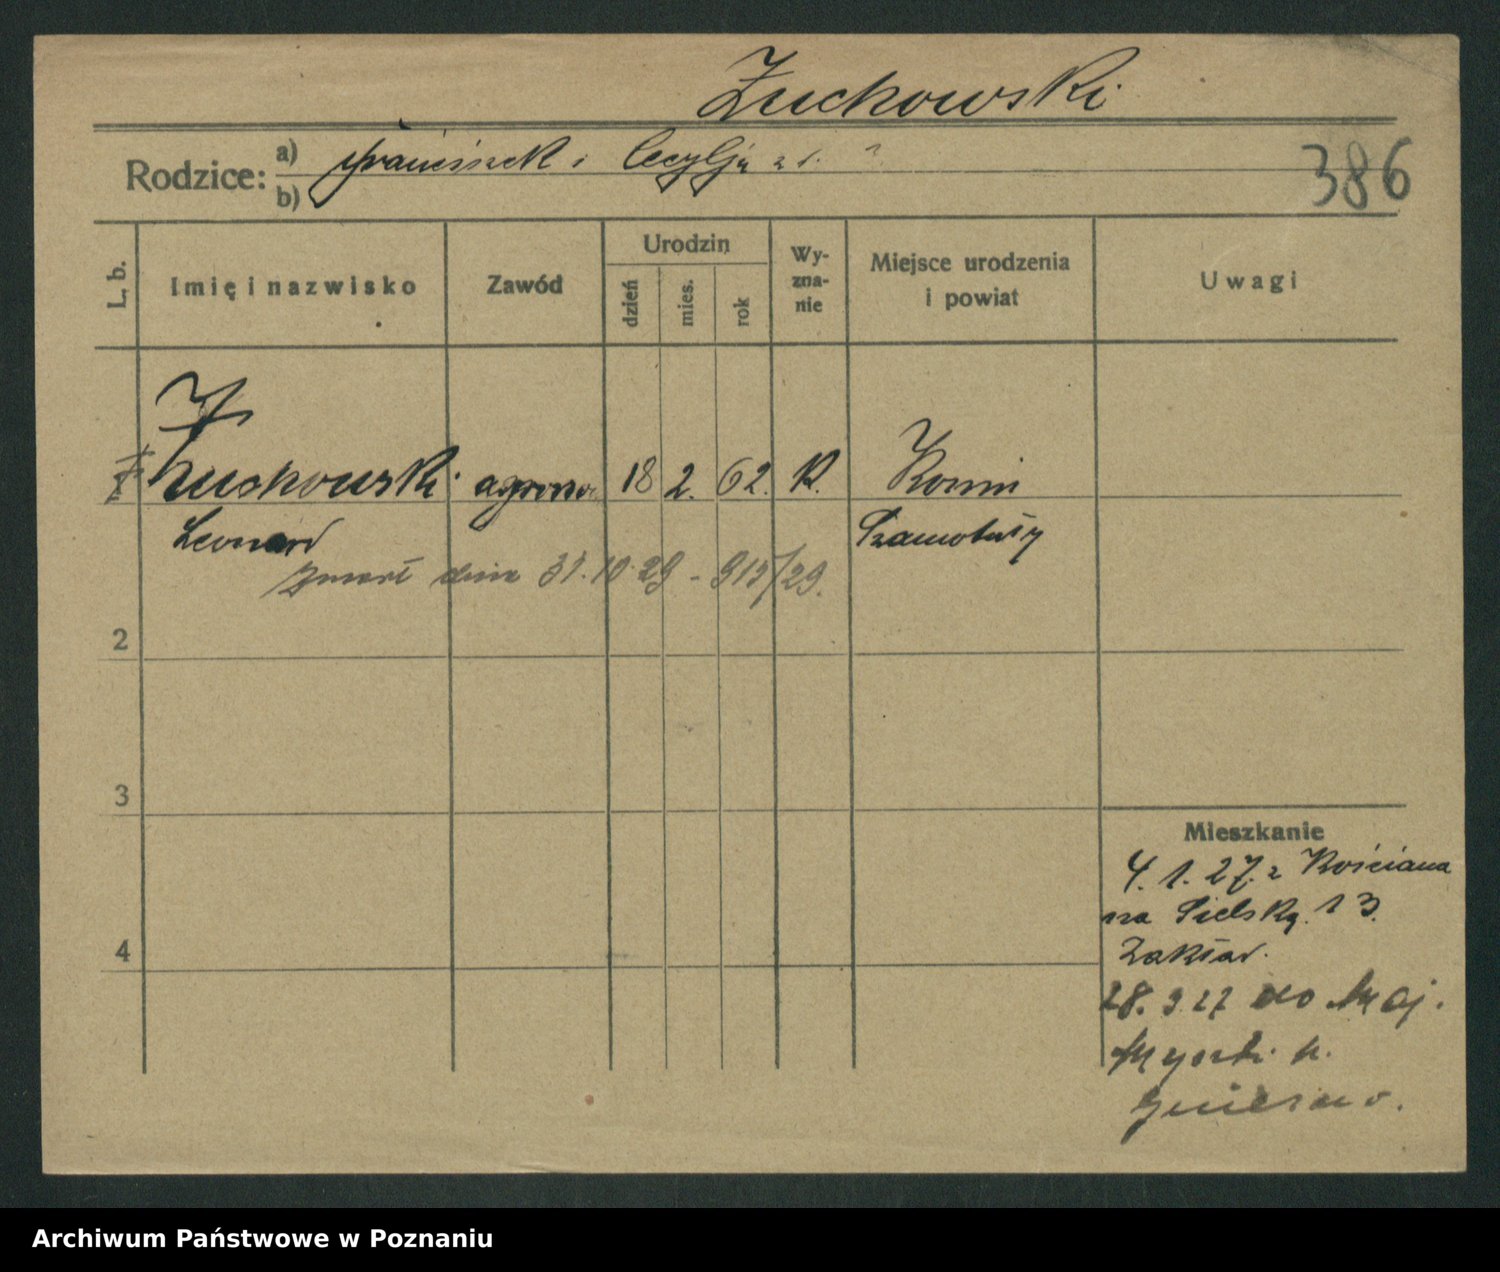 Żuchowski
Rodzice: a) Franciszek i Cecylja z d. ?
b)
386
L. b. Imię i nazwisko Zawód Urodzin dzień mies. rok Wy-zna-nie Miejsce urodzenia i powiat Uwagi
Żuchowski agronom 18 2. 62. K.
Leonard Szamotuły
zmarł dnia 31.10.29 - 913/29.
2
3
Mieszkanie
4. 1. 27. z Kościana
na Sielską 13.
Zakład.
4
28. 3. 27 do Maj.
Myszki p.
Gniezno.
Archiwum Państwowe w Poznaniu